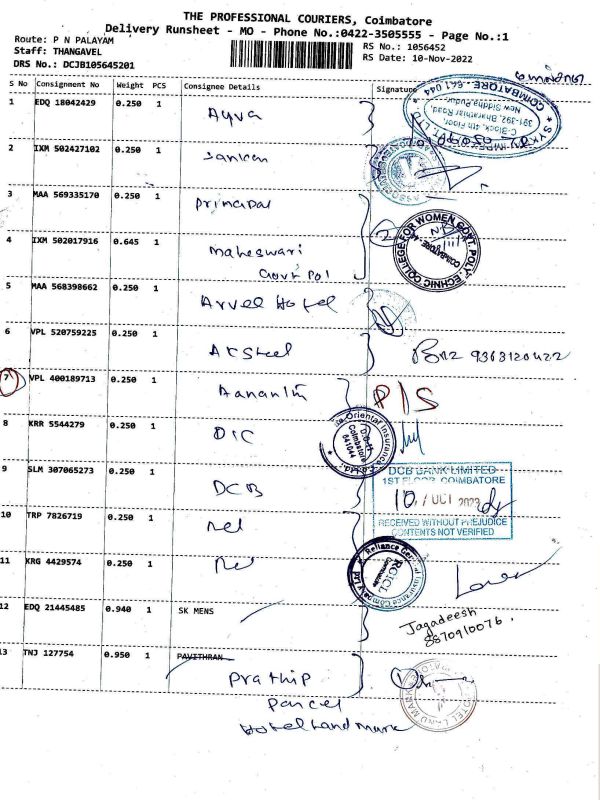 THE PROFESSIONAL COURIERS, Coimbatore
Delivery Runsheet - MO - Phone No.:0422-3505555 - Page No.:1
Route: P N PALAYAM
Staff: THANGAVEL
RS No.: 1056452
RS Date: 10-Nov-2022
DRS No.: DCJB105645201
S No Consignment No Weight PCS Consignee Details Signature
1 EDQ 18042429 0.250 1 Ayva
C-Block, 4th Floor,
391-392, Bharathiar Road,
New Siddha Pudur,
COIMBATORE - 641 044
2 IXM 502427102 0.250 1 Sankar
3 MAA 569335170 0.250 1 Principal
4 IXM 502017916 0.645 1 Maheswari
Govt Pol
COLLEGE FOR WOMEN GOVT. POLYTECHNIC
COIMBATORE
5 MAA 568398662 0.250 1 Arvee Hotel
6 VPL 520759225 0.250 1 AK Steel
9363120422
7 VPL 400189713 0.250 1 P/S
8 KRR 5544279 0.250 1 DIC
Oriental Insurance
Coimbatore
641044
9 SLM 307065273 0.250 1 DCB
DCB BANK LIMITED
1ST FLOOR, COIMBATORE
10 / OCT 2023
RECEIVED WITHOUT PREJUDICE
CONTENTS NOT VERIFIED
10 TRP 7826719 0.250 1 Rel
11 KRG 4429574 0.250 1 Rel
Reliance General Insurance Company Ltd
RGICL
Coimbatore
12 EDQ 21445485 0.940 1 SK MENS
Jagadeesh
8870910076.
13 TNJ 127754 0.950 1 PAVITHRAN
Prathip
Parcel
Hotel Land Mark
HOTEL LAND MARK